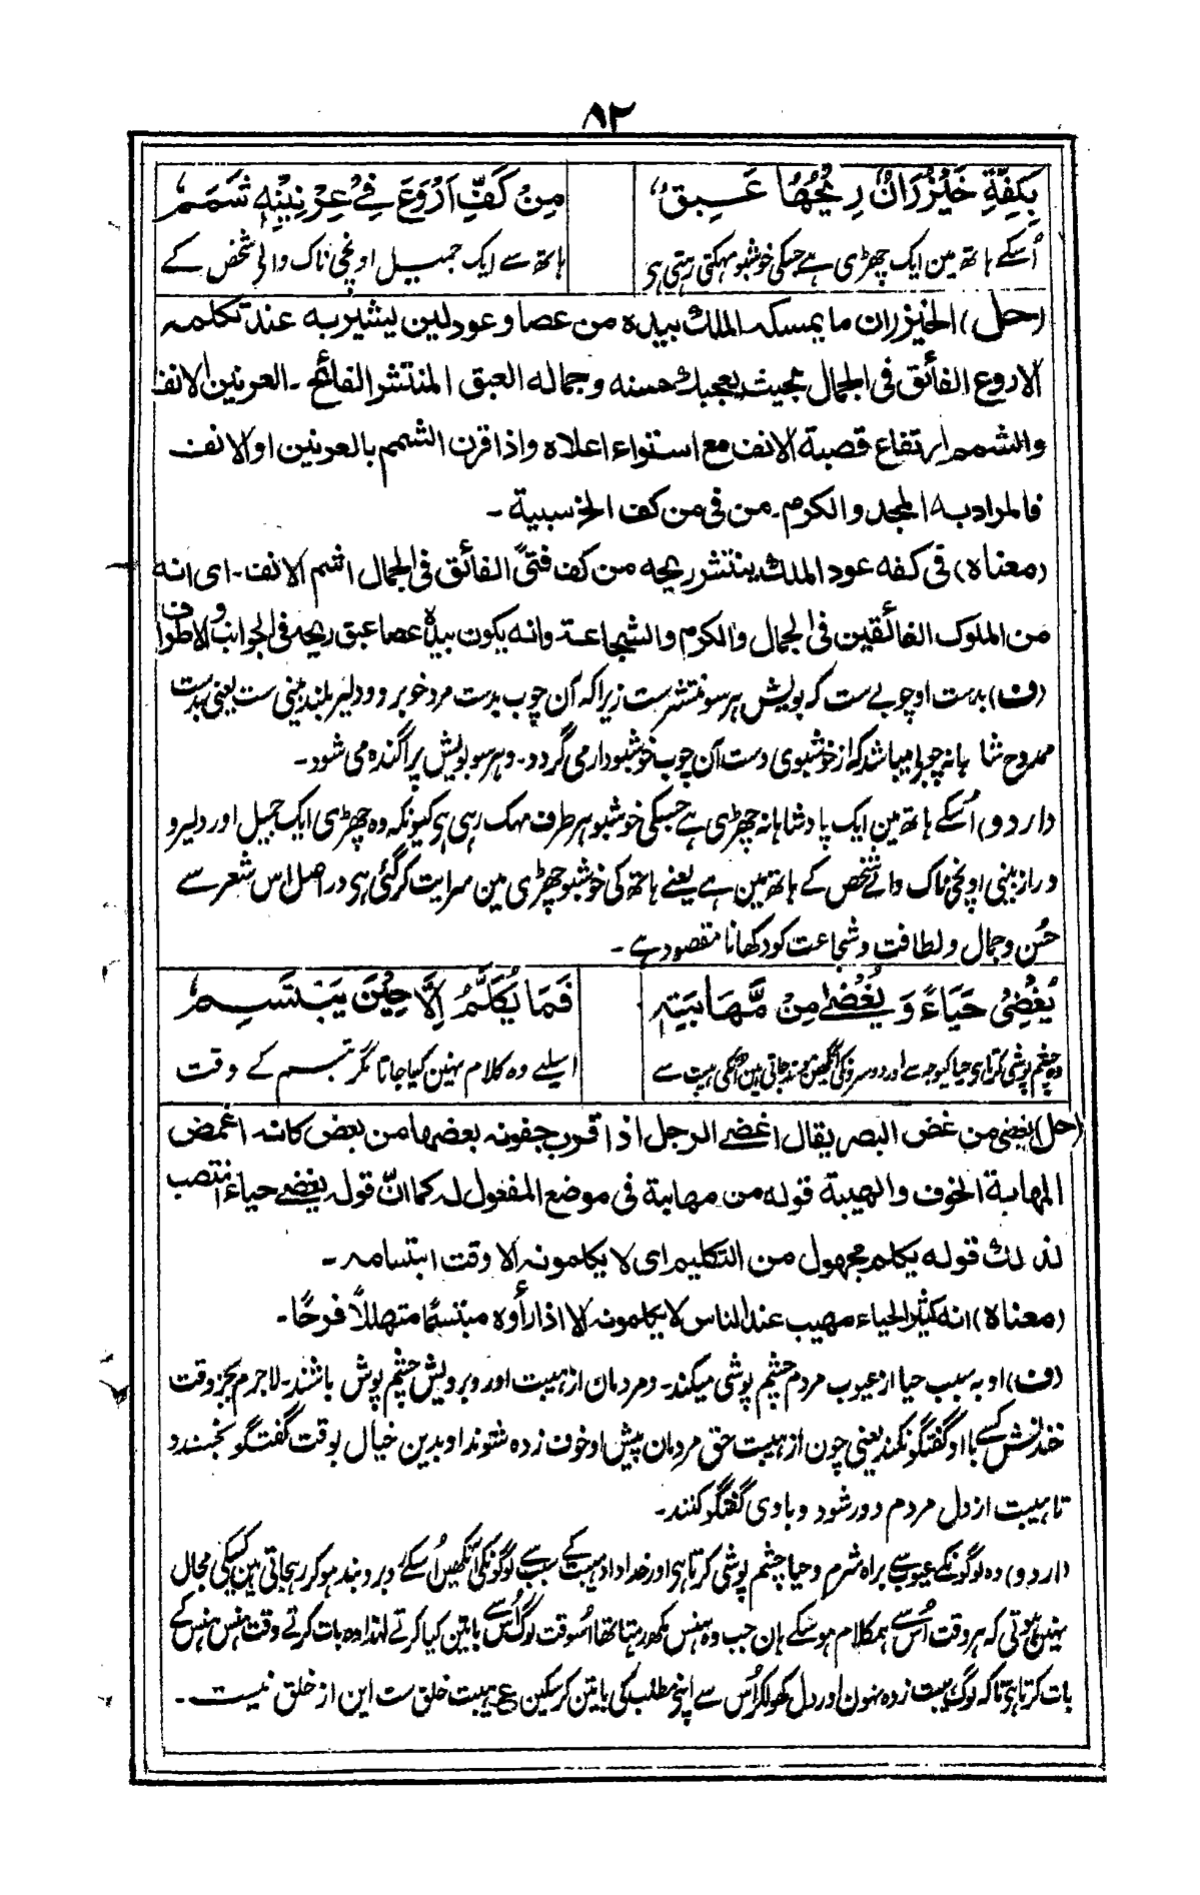 ۸۲
بِكَفِّهٖ خَيْزُرَانٌ رِيْحُهَا عَبِقٌ مِنْ كَفِّ اَرْوَعَ فِيْ عِرْنِيْنِهٖ شَمَمٌ
اُسکے ہاتھ مین ایک چھڑی ہے جسکی خوشبو مہکتی رہتی ہی ہاتھ سے ایک جمیل اونچی ناک والی شخص کے
(حل) الخيزران ما يمسكه الملك بيده من عصا وعود لين يشير به عند تكلمه
الاروع الفائق فى الجمال بحيث يعجبك حسنه وجماله العبق المنتشر الفائح ـ العرنين الانف
والشمم ارتفاع قصبة الانف مع استواء اعلاه واذا قرن الشمم بالعرنين او الانف
فالمراد به المجد والكرم ـ من فى من كف الخ سببية ـ
(معناه) فى كفه عود الملك ينتشر ريحه من كف فتىً الفائق فى الجمال اشم الانف ـ اى انه
من الملوك الفائقين فى الجمال والكرم والشجاعة وانه يكون بيده عصا عبق ريحه فى الجوانب والاطراف
(ف) بدست اوچوبے ست کہ بویش ہرسو منتشرست زیراکہ آن چوب بدست مرد خوبرو و دلیر بلند بینی ست یعنی بدست
ممدوح شاہانہ چوبی میباشد کہ از خوشبوی دست آن چوب خوشبودار می گردد ـ وہرسو بویش پراگندہ می شود ـ
(اردو) اُسکے ہاتھ مین ایک پادشاہانہ چھڑی ہے جسکی خوشبو ہر طرف مہک رہی ہی کیونکہ وہ چھڑی ایک جمیل اور دلیر و
دراز بینی اونچی ناک والے شخص کے ہاتھ مین ہے یعنے ہاتھ کی خوشبو چھڑی مین سرایت کرگئی ہی دراصل اس شعر سے
حُسن وجمال و لطافت و شجاعت کو دکھانا مقصود ہے ـ
يُغْضِيْ حَيَاءً وَيُغْضٰى مِنْ مَّهَابَتِهٖ فَمَا يُكَلَّمُ اِلَّا حِيْنَ يَبْتَسِمُ
وہ چشم پوشی کرتا ہی حیا کیوجہ سے اور دوسرونکی آنکھین موند جاتی ہین اُسکی ہیبت سے اسلیے وہ کلام نہین کیا جاتا مگر تبسم کے وقت
(حل) يغضى من غض البصر يقال اغضى الرجل اذا قرب جفونه بعضها من بعض كانه اغمض
المهابة الخوف والهيبة قوله من مهابة فى موضع المفعول له كما انّ قوله يغضى حياءً انتصب
لذلك قوله يكلم مجهول من التكليم اى لا يكلمونه الا وقت ابتسامه ـ
(معناه) انه كثير الحياء مهيب عند الناس لا يكلمونه الا اذا رأوه مبتسمًا متهللًا فرحًا ـ
(ف) او بہ سبب حیا از عیوب مردم چشم پوشی میکند ـ ومردمان از ہیبت او روبرویش چشم پوش باشند ـ لاجرم بجز وقت
خندانش کسے با او گفتگو نکند یعنی چون از ہیبت حق مردمان پیش او خوف زدہ شوند او بدین خیال بوقت گفتگو بخندد
تا ہیبت از دل مردم دور شود و باوی گفتگو کنند ـ
(اردو) وہ لوگونکے عیوب سے براہ شرم وحیا چشم پوشی کرتا ہی اور خداداد ہیبت کے سبب سے لوگونکی آنکھین اُسکے روبرو بند ہوکر رہجاتی ہین کسیکی مجال
نہین ہوتی کہ ہر وقت اُس سے ہمکلام ہوسکے ہان جب وہ ہنس مکھ رہتا تھا اُسوقت لوگ اُس سے باتین کیا کرتے لہذا وہ بات کرتے وقت ہنس ہنس کے
بات کرتا ہی تاکہ لوگ ہیبت زدہ نہون اور دل کھولکر اُس سے اپنی مطلب کی باتین کرسکین ع ہیبت خلق ست این از خلق نیست ـ